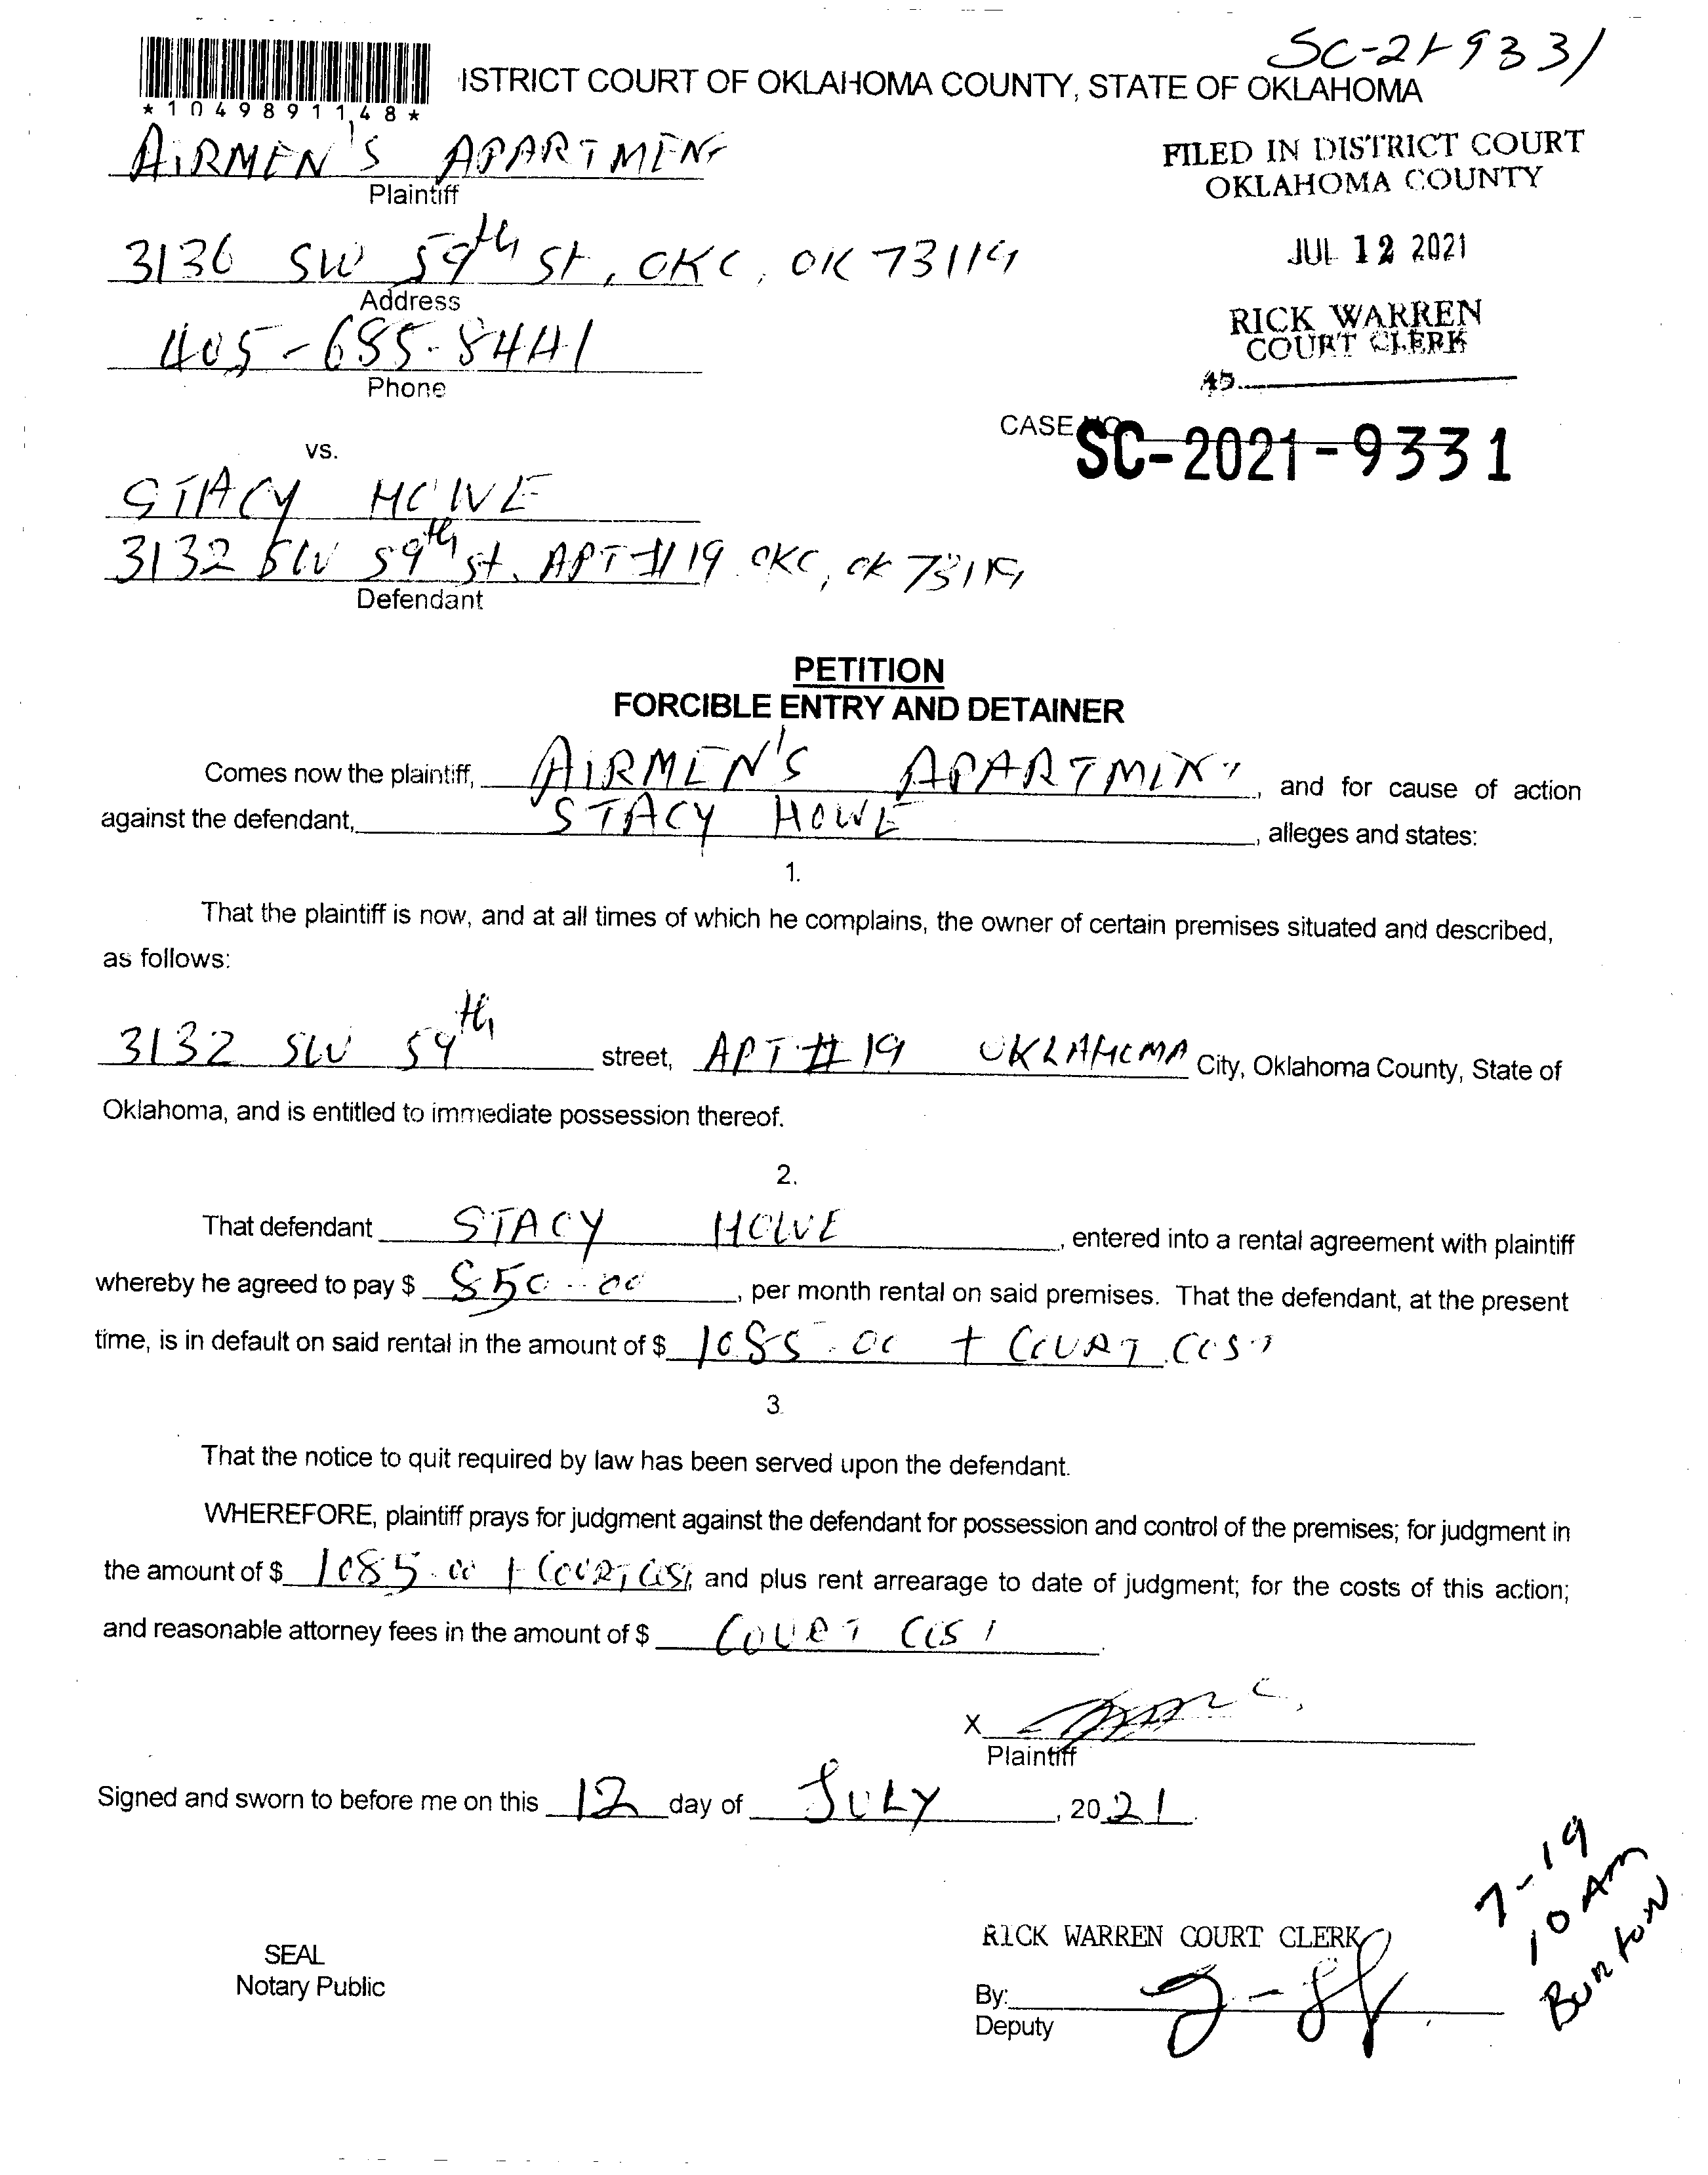 SC-21-9331
ISTRICT COURT OF OKLAHOMA COUNTY, STATE OF OKLAHOMA
*1049891148*
AIRMEN'S APARTMENT
Plaintiff
FILED IN DISTRICT COURT
OKLAHOMA COUNTY
3136 SW 59th St, OKC, OK 73119
Address
JUL 12 2021
405-685-8441
Phone
RICK WARREN
COURT CLERK
45
CASE NO.
SC-2021-9331
vs.
STACY HOWE
3132 SW 59th St. APT #19 OKC, OK 73119
Defendant
PETITION
FORCIBLE ENTRY AND DETAINER
Comes now the plaintiff, AIRMEN'S APARTMENT, and for cause of action
against the defendant, STACY HOWE, alleges and states:
1.
That the plaintiff is now, and at all times of which he complains, the owner of certain premises situated and described,
as follows:
3132 SW 59th street, APT #19 OKLAHOMA City, Oklahoma County, State of
Oklahoma, and is entitled to immediate possession thereof.
2.
That defendant STACY HOWE, entered into a rental agreement with plaintiff
whereby he agreed to pay $ 850.00, per month rental on said premises. That the defendant, at the present
time, is in default on said rental in the amount of $ 1085.00 + COURT COST
3.
That the notice to quit required by law has been served upon the defendant.
WHEREFORE, plaintiff prays for judgment against the defendant for possession and control of the premises; for judgment in
the amount of $ 1085.00 + COURT COST, and plus rent arrearage to date of judgment; for the costs of this action;
and reasonable attorney fees in the amount of $ COURT COST.
X
Plaintiff
Signed and sworn to before me on this 12 day of JULY, 2021.
7-19
10 AM
Burton
SEAL
Notary Public
RICK WARREN COURT CLERK
By:
Deputy